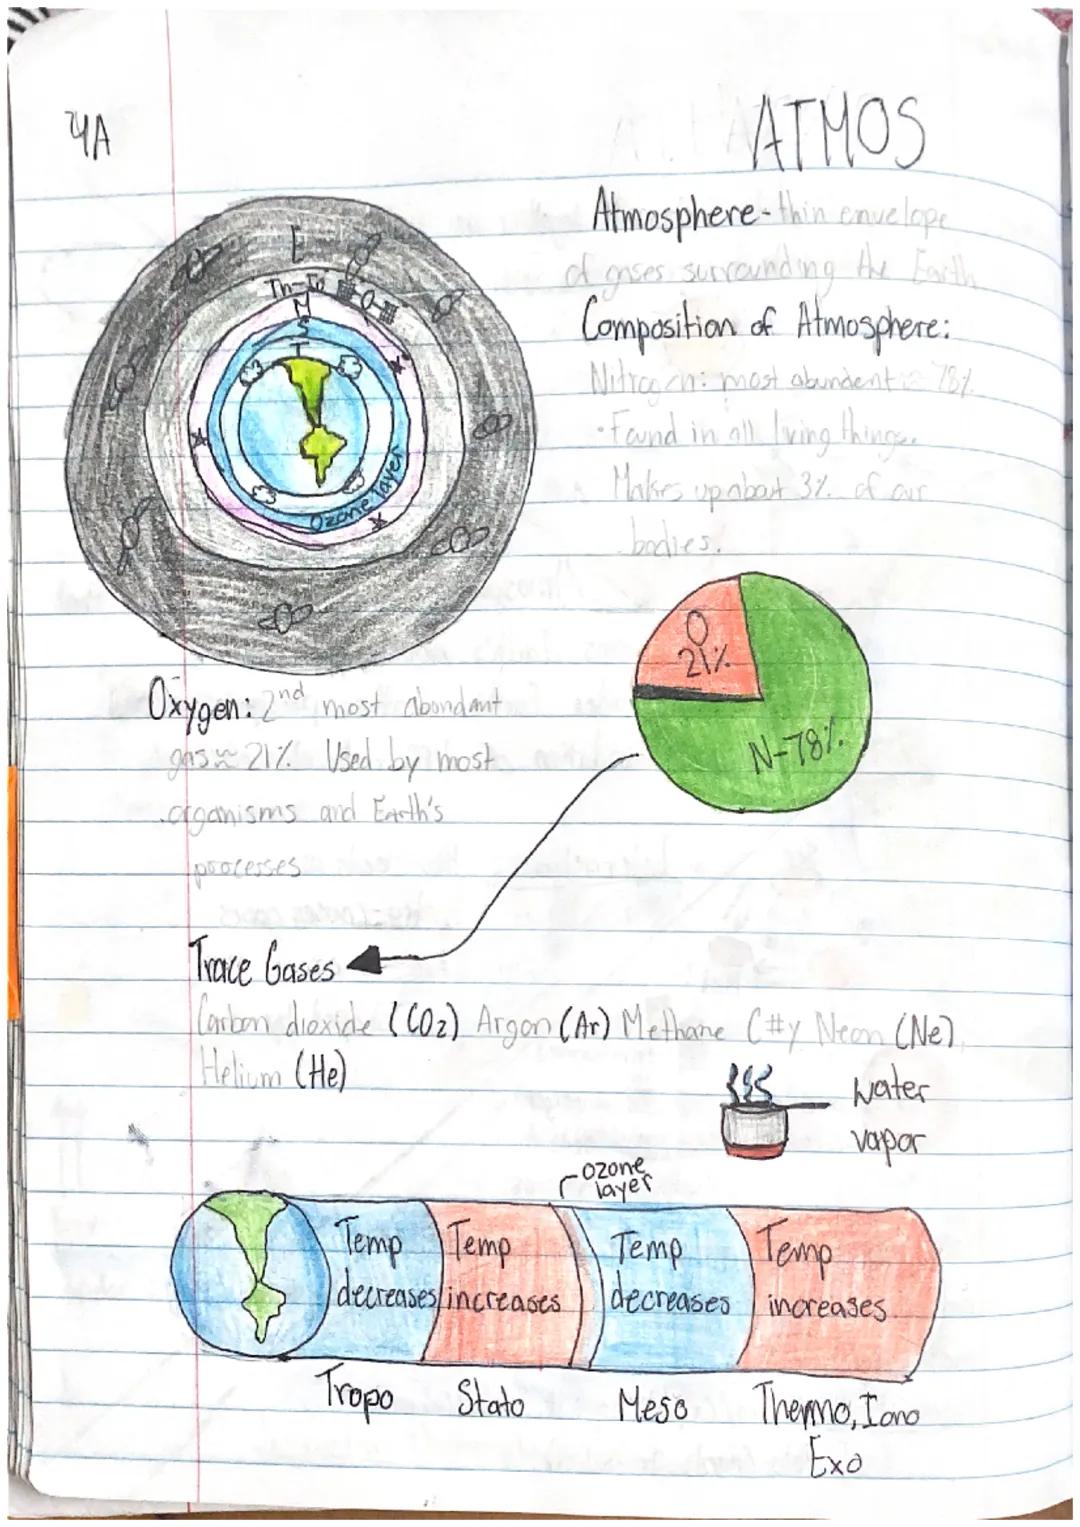 4A
ATMOS
Atmosphere - thin envelope
of gases surrounding the Earth
Composition of Atmosphere:
Nitrogen: most abundent ≈ 78%
• Found in all living things.
Makes up about 3% of our
bodies.
E
Th-Io
M
S
T
Ozone layer
O
21%
N-78%
Oxygen: 2nd most abondant
gas ≈ 21% Used by most
organisms and Earth's
processes
Trace Gases
Carbon dioxide (CO2) Argon (Ar) Methane C#y Neon (Ne)
Helium (He)
water
vapor
ozone
layer
Temp Temp Temp Temp
decreases increases decreases increases
Tropo Stato Meso Thermo, Iono
Exo